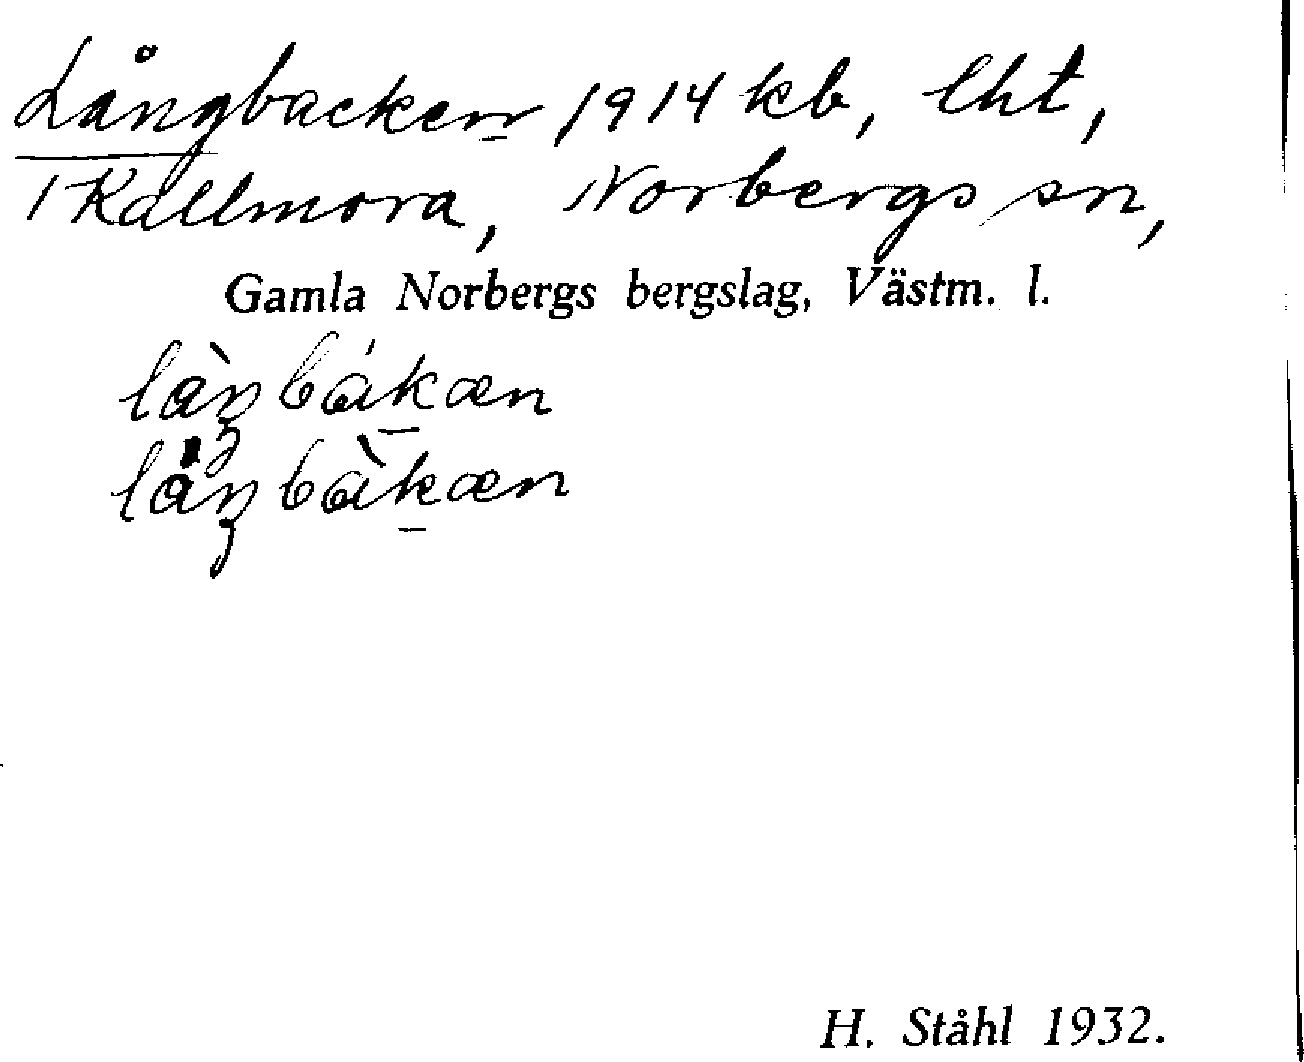 Långbacken 1914 kb, lht,
1 Kallmora, Norbergs sn,
Gamla Norbergs bergslag, Västm. l.
H. Ståhl 1932.